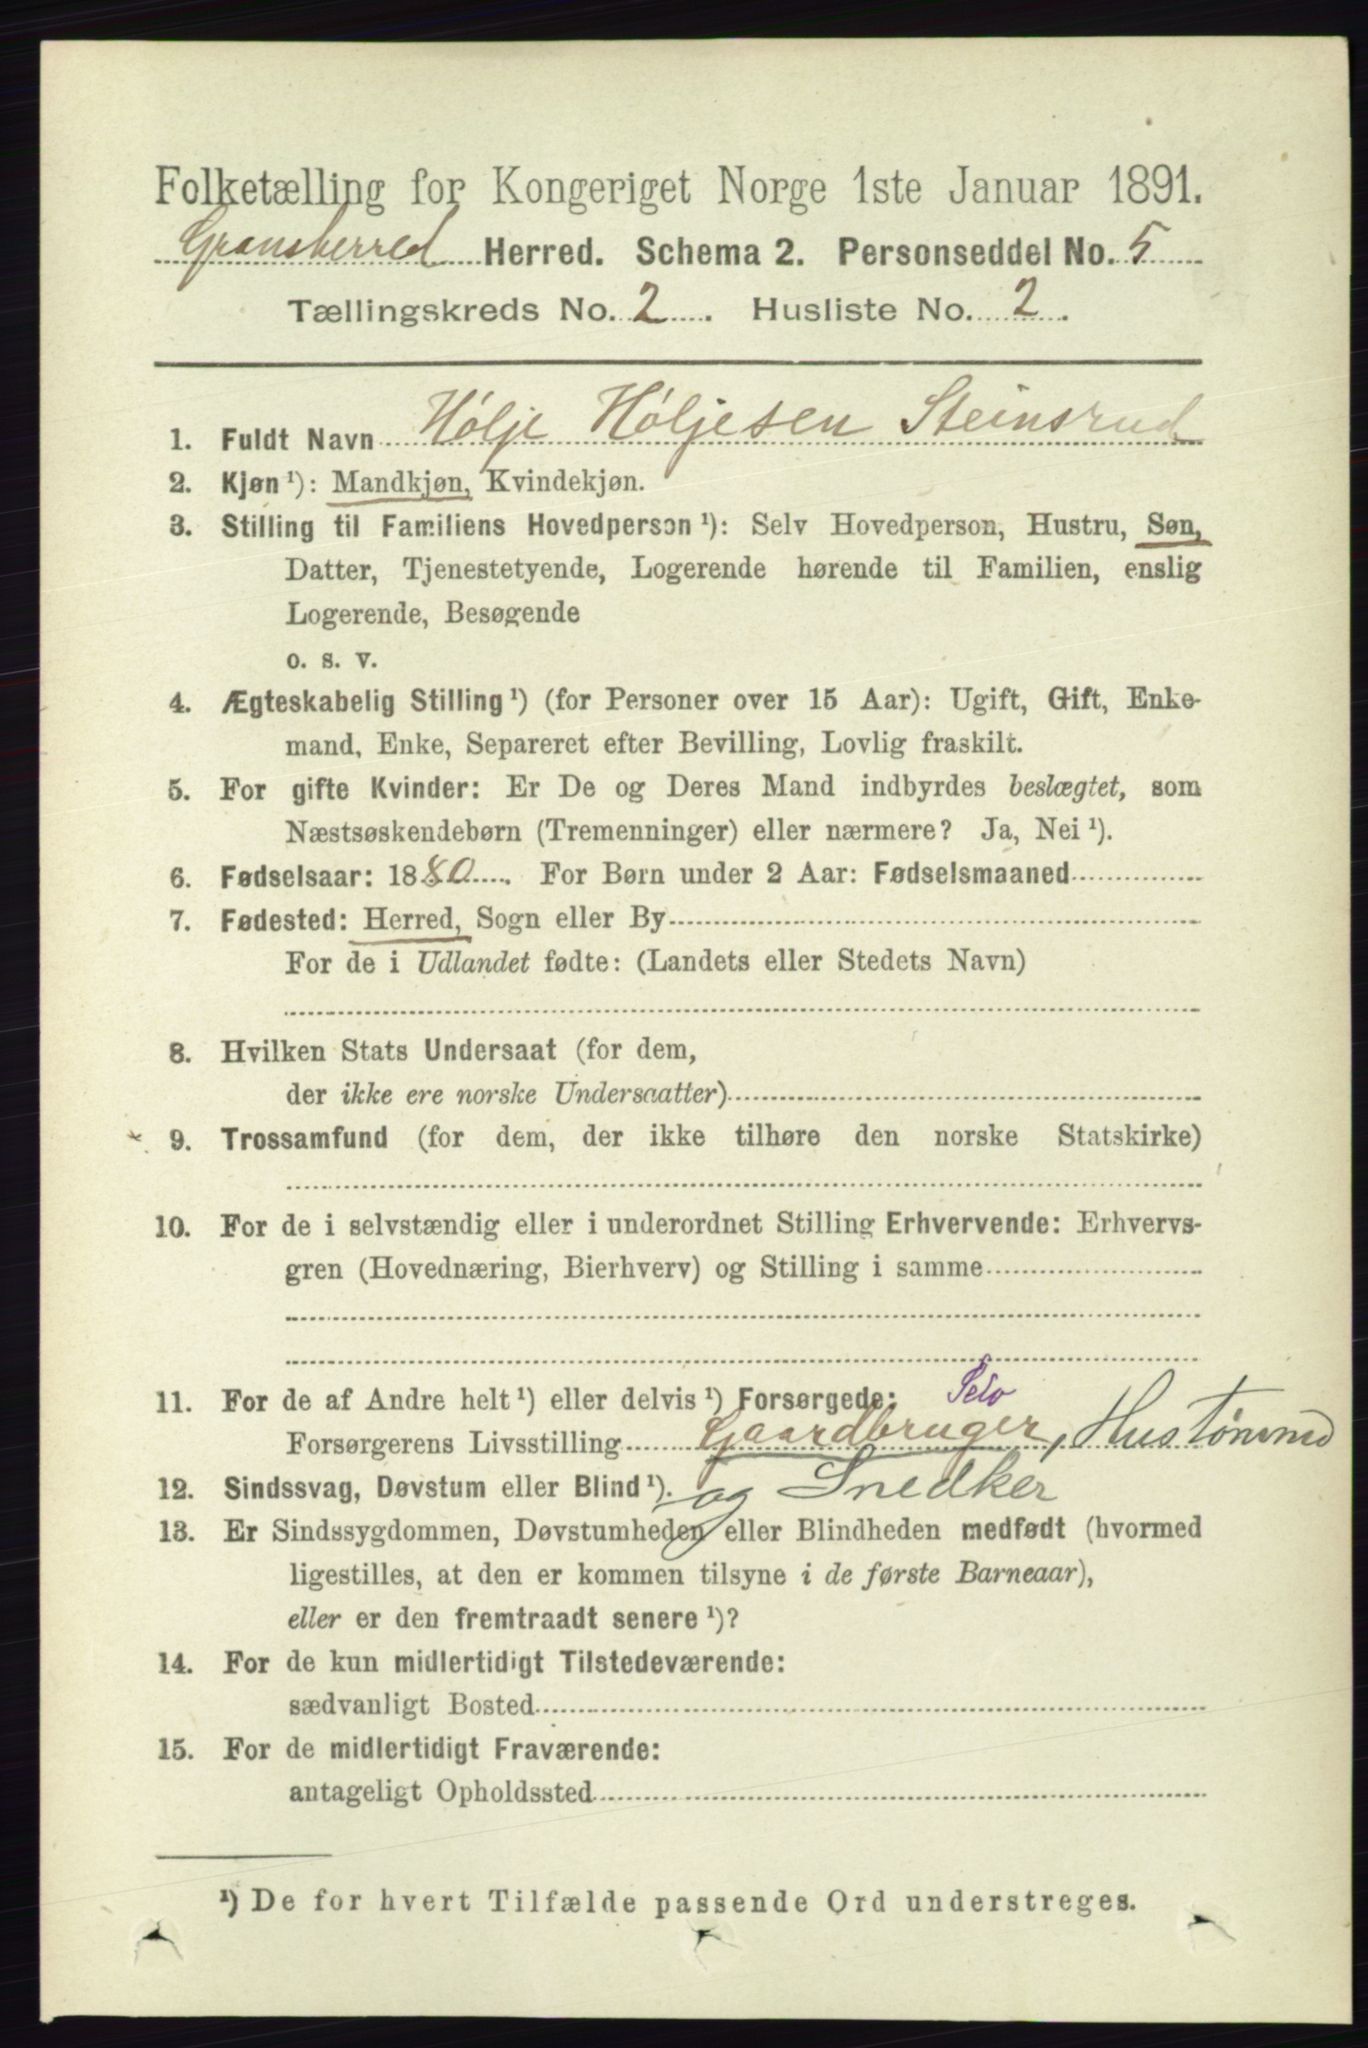 Folketælling for Kongeriget Norge 1ste Januar 1891.
Gransherred Herred. Schema 2. Personseddel No. 5
Tællingskreds No. 2. Husliste No. 2.
1. Fuldt Navn Hølje Høljesen Steinsrud
2. Kjøn ¹): Mandkjøn, Kvindekjøn.
3. Stilling til Familiens Hovedperson ¹): Selv Hovedperson, Hustru, Søn,
Datter, Tjenestetyende, Logerende hørende til Familien, enslig
Logerende, Besøgende
o. s. v.
4. Ægteskabelig Stilling ¹) (for Personer over 15 Aar): Ugift, Gift, Enke-
mand, Enke, Separeret efter Bevilling, Lovlig fraskilt.
5. For gifte Kvinder: Er De og Deres Mand indbyrdes beslægtet, som
Næstsøskendebørn (Tremenninger) eller nærmere? Ja, Nei ¹).
6. Fødselsaar: 1880. For Børn under 2 Aar: Fødselsmaaned
7. Fødested: Herred, Sogn eller By
For de i Udlandet fødte: (Landets eller Stedets Navn)
8. Hvilken Stats Undersaat (for dem,
der ikke ere norske Undersaatter)
9. Trossamfund (for dem, der ikke tilhøre den norske Statskirke)
10. For de i selvstændig eller i underordnet Stilling Erhvervende: Erhvervs-
gren (Hovednæring, Bierhverv) og Stilling i samme
11. For de af Andre helt ¹) eller delvis ¹) Forsørgede: Selv
Forsørgerens Livsstilling Gaardbruger, Hustømmd
12. Sindssvag, Døvstum eller Blind ¹). og Snedker
13. Er Sindssygdommen, Døvstumheden eller Blindheden medfødt (hvormed
ligestilles, at den er kommen tilsyne i de første Barneaar),
eller er den fremtraadt senere ¹)?
14. For de kun midlertidigt Tilstedeværende:
sædvanligt Bosted
15. For de midlertidigt Fraværende:
antageligt Opholdssted
¹) De for hvert Tilfælde passende Ord understreges.